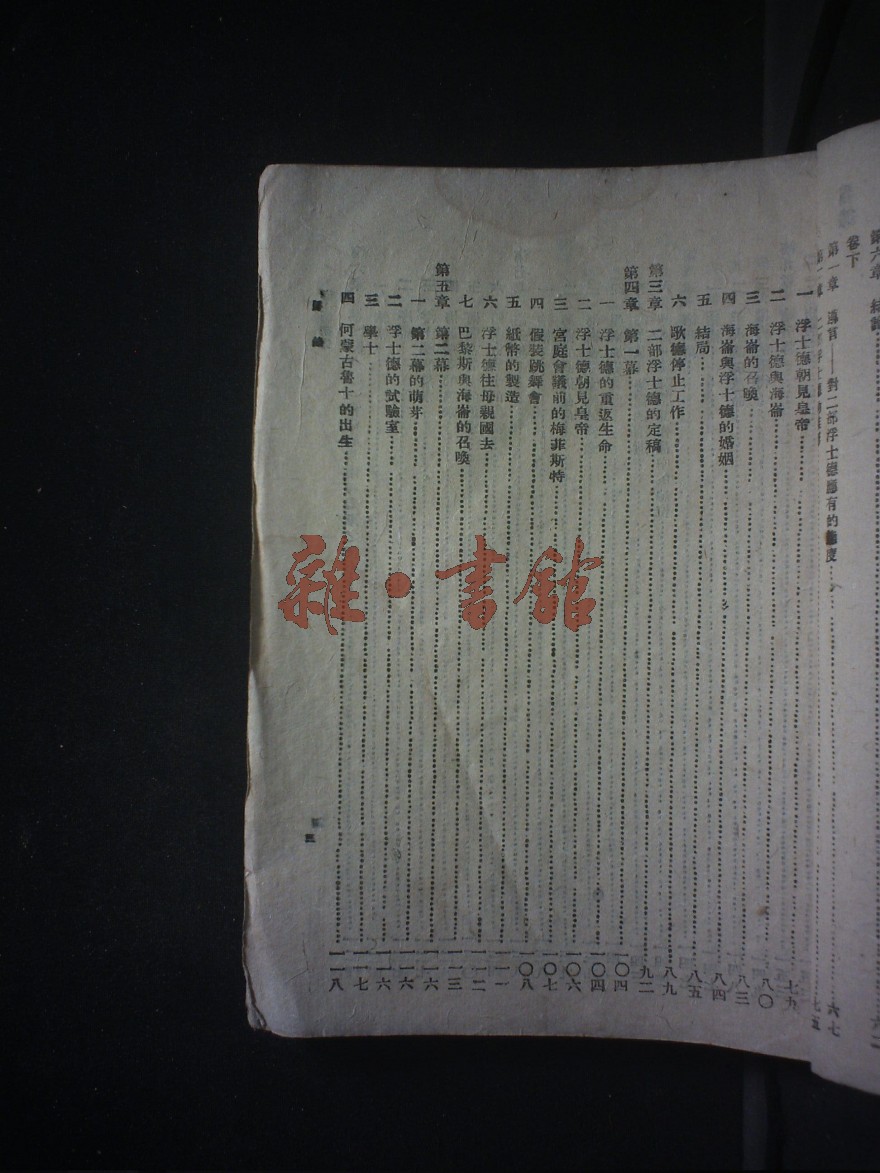 卷下
第一章 導言——對二部浮士德應有的態度 六七
一 浮士德朝見皇帝 七九
二 浮士德與海崙 八〇
三 海崙的召喚 八三
四 海崙與浮士德的婚姻 八四
五 結局 八五
六 歌德停止工作 八九
第三章 二部浮士德的定稿 九二
第四章 第一幕 一〇四
一 浮士德的重返生命 一〇四
二 浮士德朝見皇帝 一〇六
三 宮庭會議前的梅非斯特 一〇七
四 假裝跳舞會 一〇八
五 紙幣的製造 一一一
六 浮士德往母親國去 一一二
七 巴黎斯與海崙的召喚 一一三
第五章 第二幕 一一六
一 第二幕的萌芽 一一六
二 浮士德的試驗室 一一六
三 學士 一一七
四 何蒙古魯士的出生 一一八
三
雜·書館